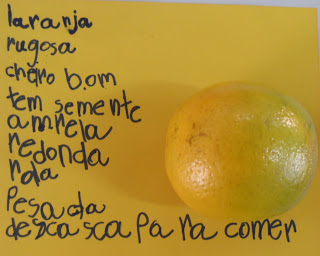 laranja
rugosa
chero bom
tem semente
amarela
redonda
rola
Pesada
descasca para comer